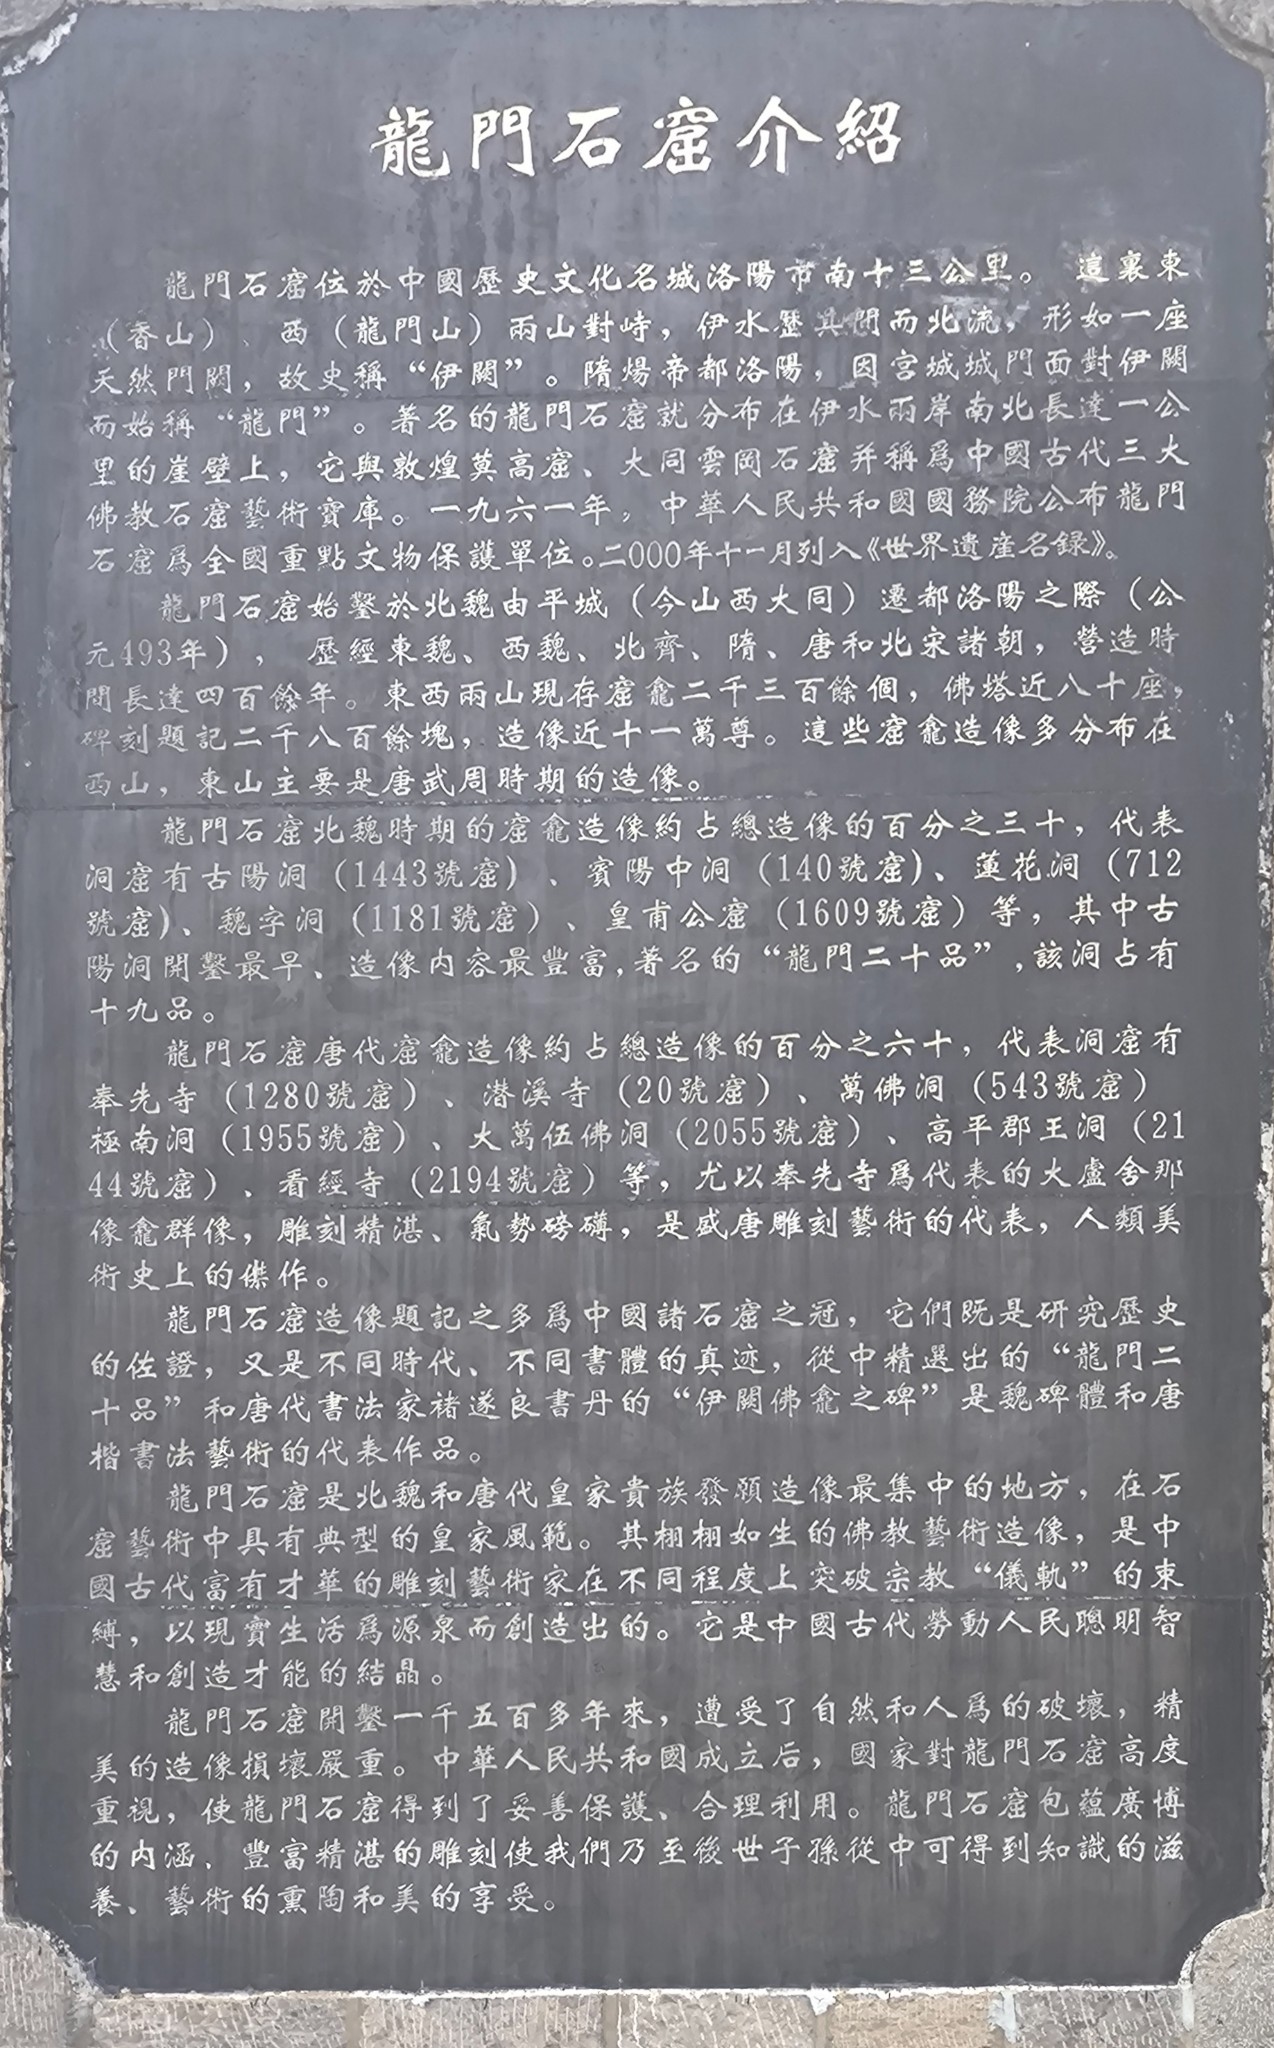 龍門石窟介紹
龍門石窟位於中國歷史文化名城洛陽市南十三公里。 這裏東
（香山）、西（龍門山）兩山對峙，伊水歷其間而北流，形如一座
天然門闕，故史稱“伊闕”。隋煬帝都洛陽，因宮城城門面對伊闕
而始稱“龍門”。著名的龍門石窟就分布在伊水兩岸南北長達一公
里的崖壁上，它與敦煌莫高窟、大同雲岡石窟并稱爲中國古代三大
佛教石窟藝術寶庫。一九六一年，中華人民共和國國務院公布龍門
石窟爲全國重點文物保護單位。二000年十一月列入《世界遺産名録》。
龍門石窟始鑿於北魏由平城（今山西大同）遷都洛陽之際（公
元493年），歷經東魏、西魏、北齊、隋、唐和北宋諸朝，營造時
間長達四百餘年。東西兩山現存窟龕二千三百餘個，佛塔近八十座，
碑刻題記二千八百餘塊，造像近十一萬尊。這些窟龕造像多分布在
西山，東山主要是唐武周時期的造像。
龍門石窟北魏時期的窟龕造像約占總造像的百分之三十，代表
洞窟有古陽洞（1443號窟）、賓陽中洞（140號窟)、蓮花洞（712
號窟)、魏字洞（1181號窟）、皇甫公窟（1609號窟）等，其中古
陽洞開鑿最早、造像内容最豐富,著名的“龍門二十品”,該洞占有
十九品。
龍門石窟唐代窟龕造像約占總造像的百分之六十，代表洞窟有
奉先寺（1280號窟）、潜溪寺（20號窟）、萬佛洞（543號窟）
極南洞（1955號窟）、大萬伍佛洞（2055號窟）、高平郡王洞（21
44號窟）、看經寺（2194號窟）等，尤以奉先寺爲代表的大盧舍那
像龕群像，雕刻精湛、氣勢磅礴，是盛唐雕刻藝術的代表，人類美
術史上的傑作。
龍門石窟造像題記之多爲中國諸石窟之冠，它們既是研究歷史
的佐證，又是不同時代、不同書體的真迹，從中精選出的“龍門二
十品”和唐代書法家褚遂良書丹的“伊闕佛龕之碑”是魏碑體和唐
楷書法藝術的代表作品。
龍門石窟是北魏和唐代皇家貴族發願造像最集中的地方，在石
窟藝術中具有典型的皇家風範。其栩栩如生的佛教藝術造像，是中
國古代富有才華的雕刻藝術家在不同程度上突破宗教“儀軌”的束
縛，以現實生活爲源泉而創造出的。它是中國古代勞動人民聰明智
慧和創造才能的結晶。
龍門石窟開鑿一千五百多年來，遭受了自然和人爲的破壞，精
美的造像損壞嚴重。中華人民共和國成立后，國家對龍門石窟高度
重視，使龍門石窟得到了妥善保護、合理利用。龍門石窟包蘊廣博
的内涵、豐富精湛的雕刻使我們乃至後世子孫從中可得到知識的滋
養、藝術的熏陶和美的享受。